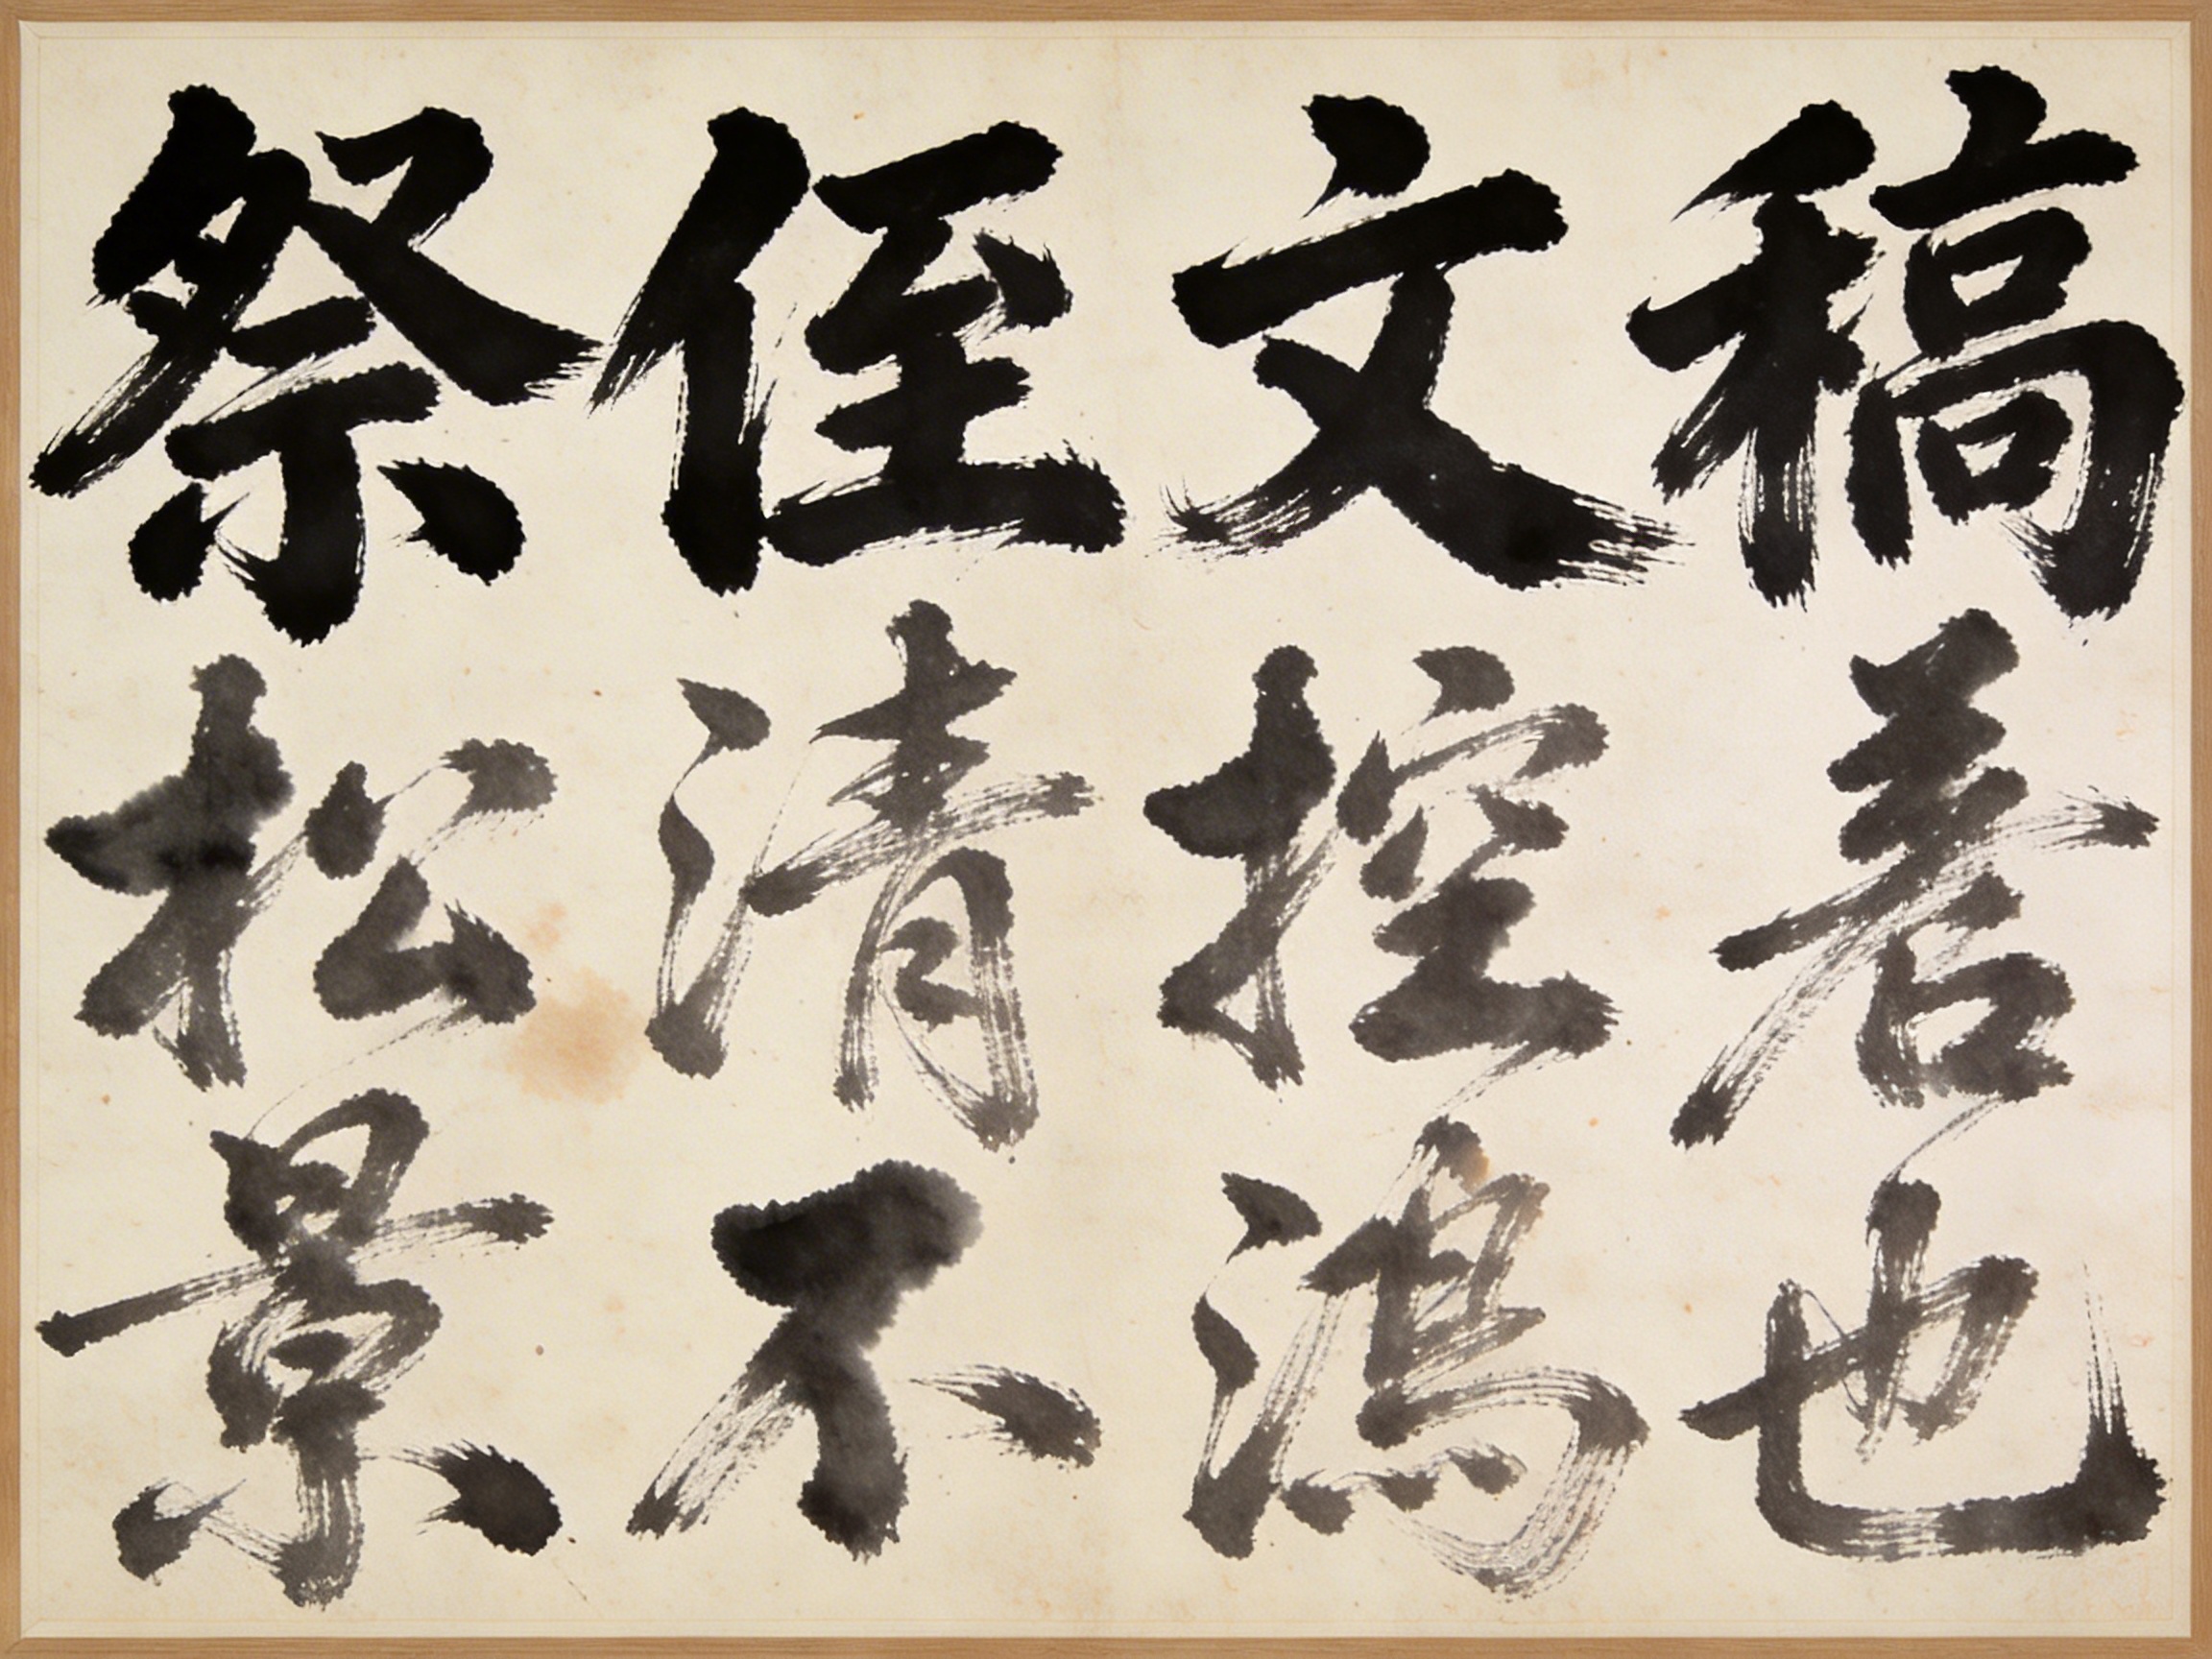 祭侄文稿
松清控
景不鴻也